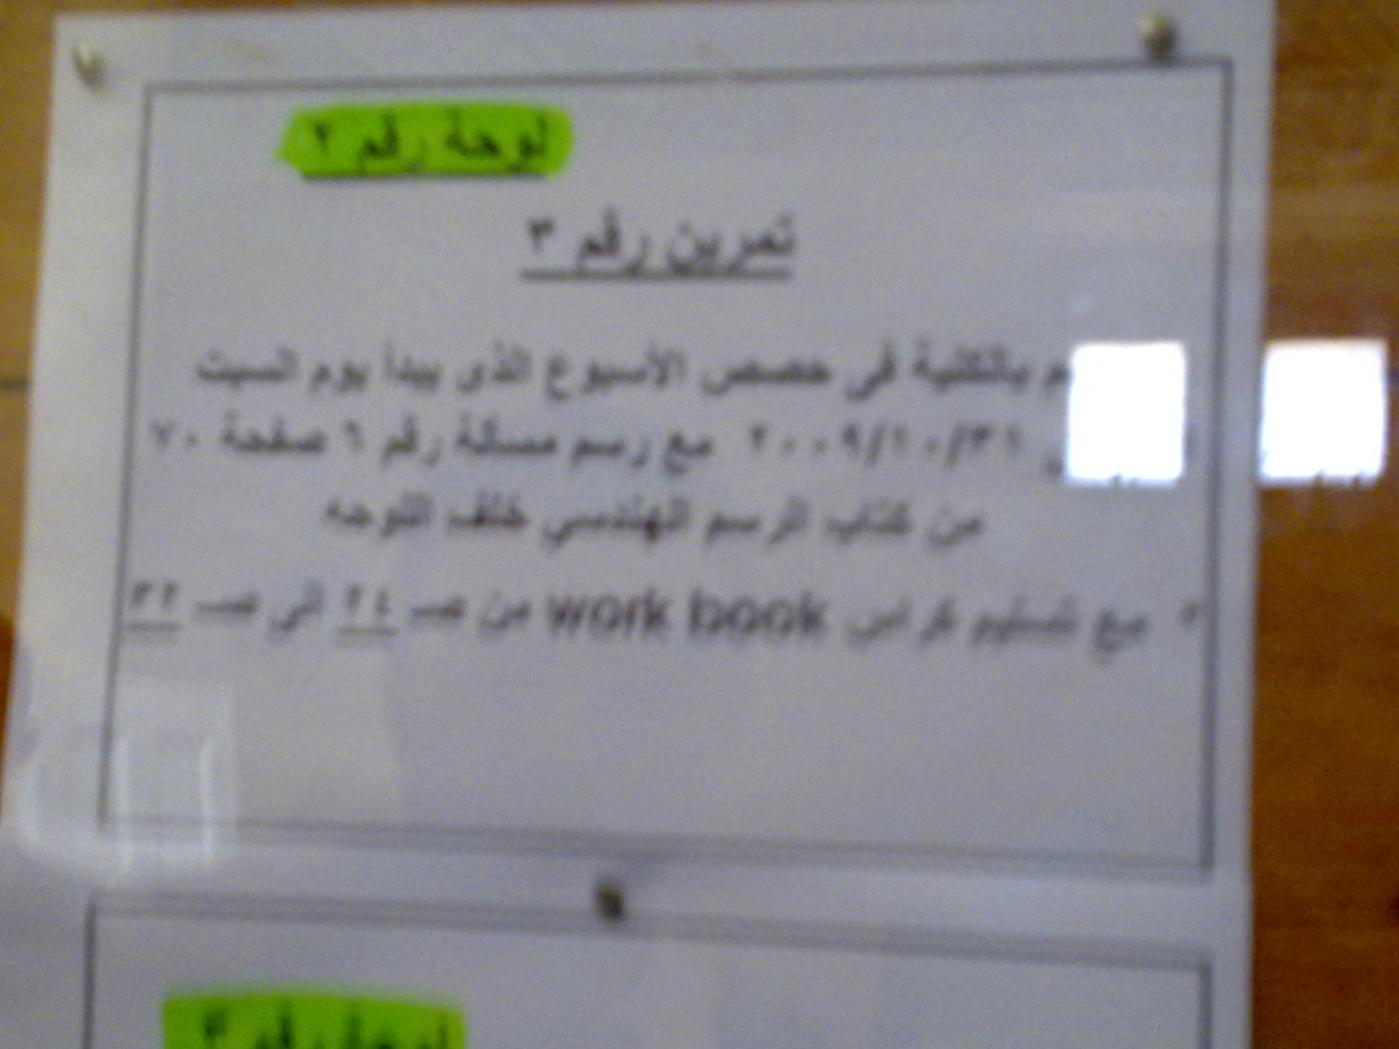 لوحة رقم ٢
تمرين رقم ٣
بالكلية فى حصص الأسبوع الذى يبدأ يوم السبت
٢٠٠٩/١٠/٣١ مع رسم مسألة رقم ٦ صفحة ٧٠
من كتاب الرسم الهندسي خلف اللوحه
* مع تسليم كراس work book من صـ ٢٤ الى صـ ٣٢
لوحة رقم ٣